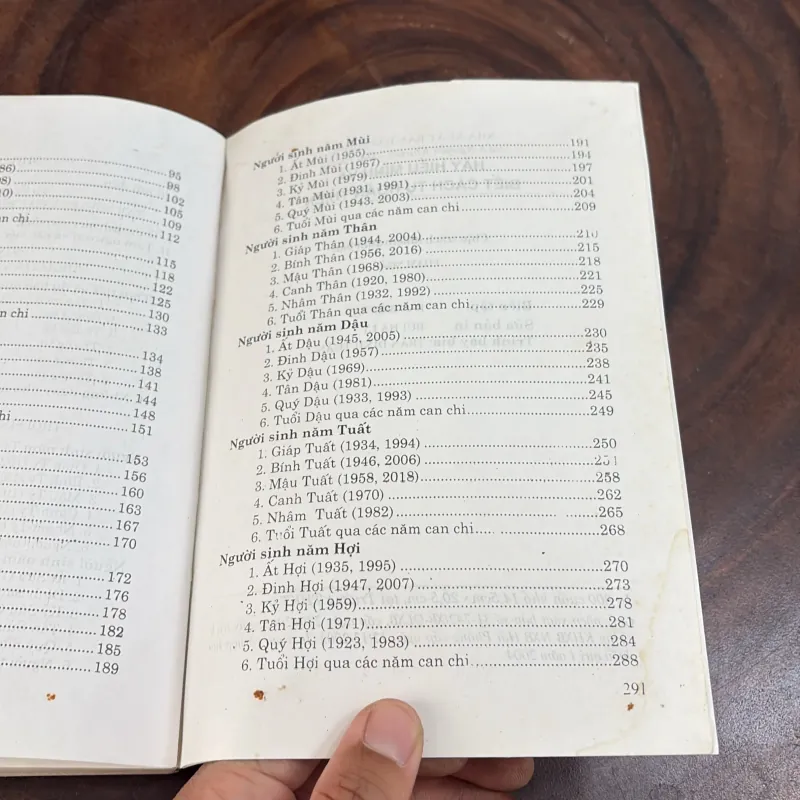 86)
95
98
102
105
109
112
115
118
122
125
130
133
134
138
141
144
148
151
153
156
160
163
167
170
172
176
178
182
185
189
Người sinh năm Mùi
1. Ất Mùi (1955) 191
2. Đinh Mùi (1967) 194
3. Kỷ Mùi (1979) 197
4. Tân Mùi (1931, 1991) 201
5. Quý Mùi (1943, 2003) 204
6. Tuổi Mùi qua các năm can chi 209
Người sinh năm Thân
1. Giáp Thân (1944, 2004) 210
2. Bính Thân (1956, 2016) 215
3. Mậu Thân (1968) 218
4. Canh Thân (1920, 1980) 221
5. Nhâm Thân (1932, 1992) 225
6. Tuổi Thân qua các năm can chi 229
Người sinh năm Dậu
1. Ất Dậu (1945, 2005) 230
2. Đinh Dậu (1957) 235
3. Kỷ Dậu (1969) 238
4. Tân Dậu (1981) 241
5. Quý Dậu (1933, 1993) 245
6. Tuổi Dậu qua các năm can chi 249
Người sinh năm Tuất
1. Giáp Tuất (1934, 1994) 250
2. Bính Tuất (1946, 2006) 251
3. Mậu Tuất (1958, 2018) 258
4. Canh Tuất (1970) 262
5. Nhâm Tuất (1982) 265
6. Tuổi Tuất qua các năm can chi 268
Người sinh năm Hợi
1. Ất Hợi (1935, 1995) 270
2. Đinh Hợi (1947, 2007) 273
3. Kỷ Hợi (1959) 278
4. Tân Hợi (1971) 281
5. Quý Hợi (1923, 1983) 284
6. Tuổi Hợi qua các năm can chi 288
291